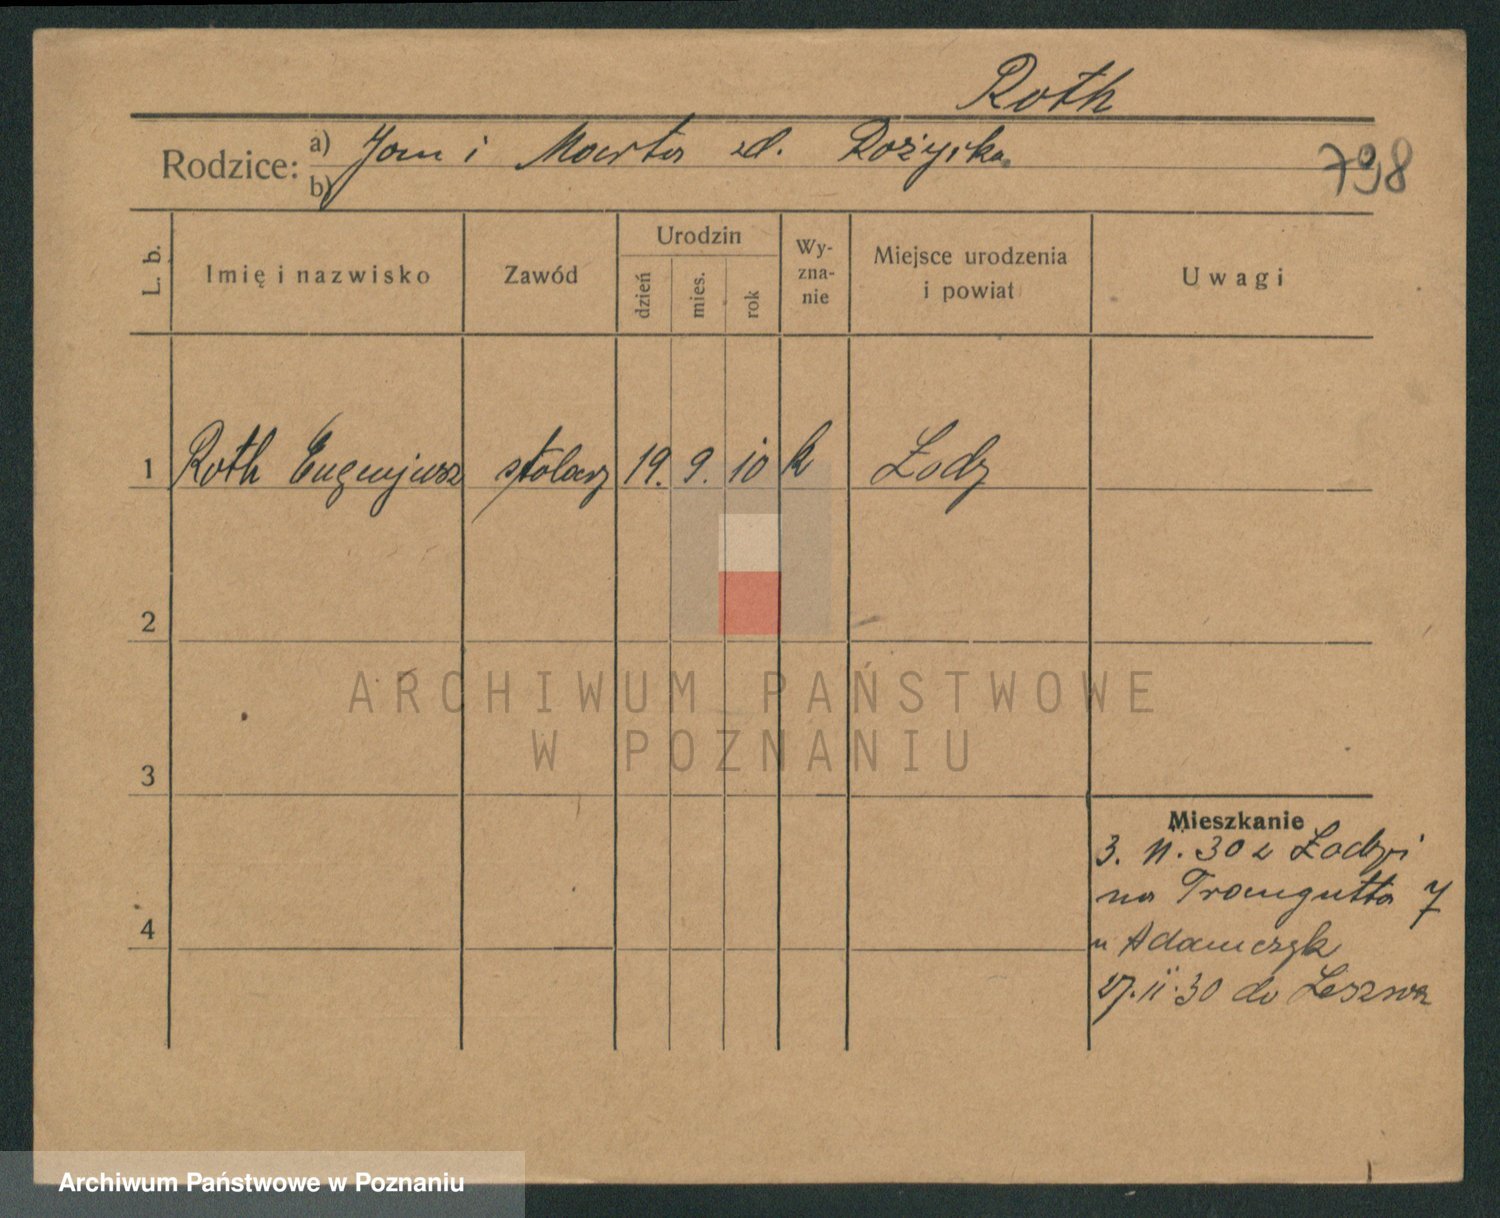 Roth
Rodzice: a) Jan i Marta z d. Rożycka
b)
798
L. b.
Imię i nazwisko
Zawód
Urodzin
dzień
mies.
rok
Wy-
zna-
nie
Miejsce urodzenia
i powiat
Uwagi
1 Roth Eugenjusz stolarz 19. 9. 10 k Łodz
2
3
4
Mieszkanie
3. II. 30 z Łodzi
na Traugutta 7
u Adamczyk
27. II. 30 do Leszna
ARCHIWUM PAŃSTWOWE
W POZNANIU
Archiwum Państwowe w Poznaniu